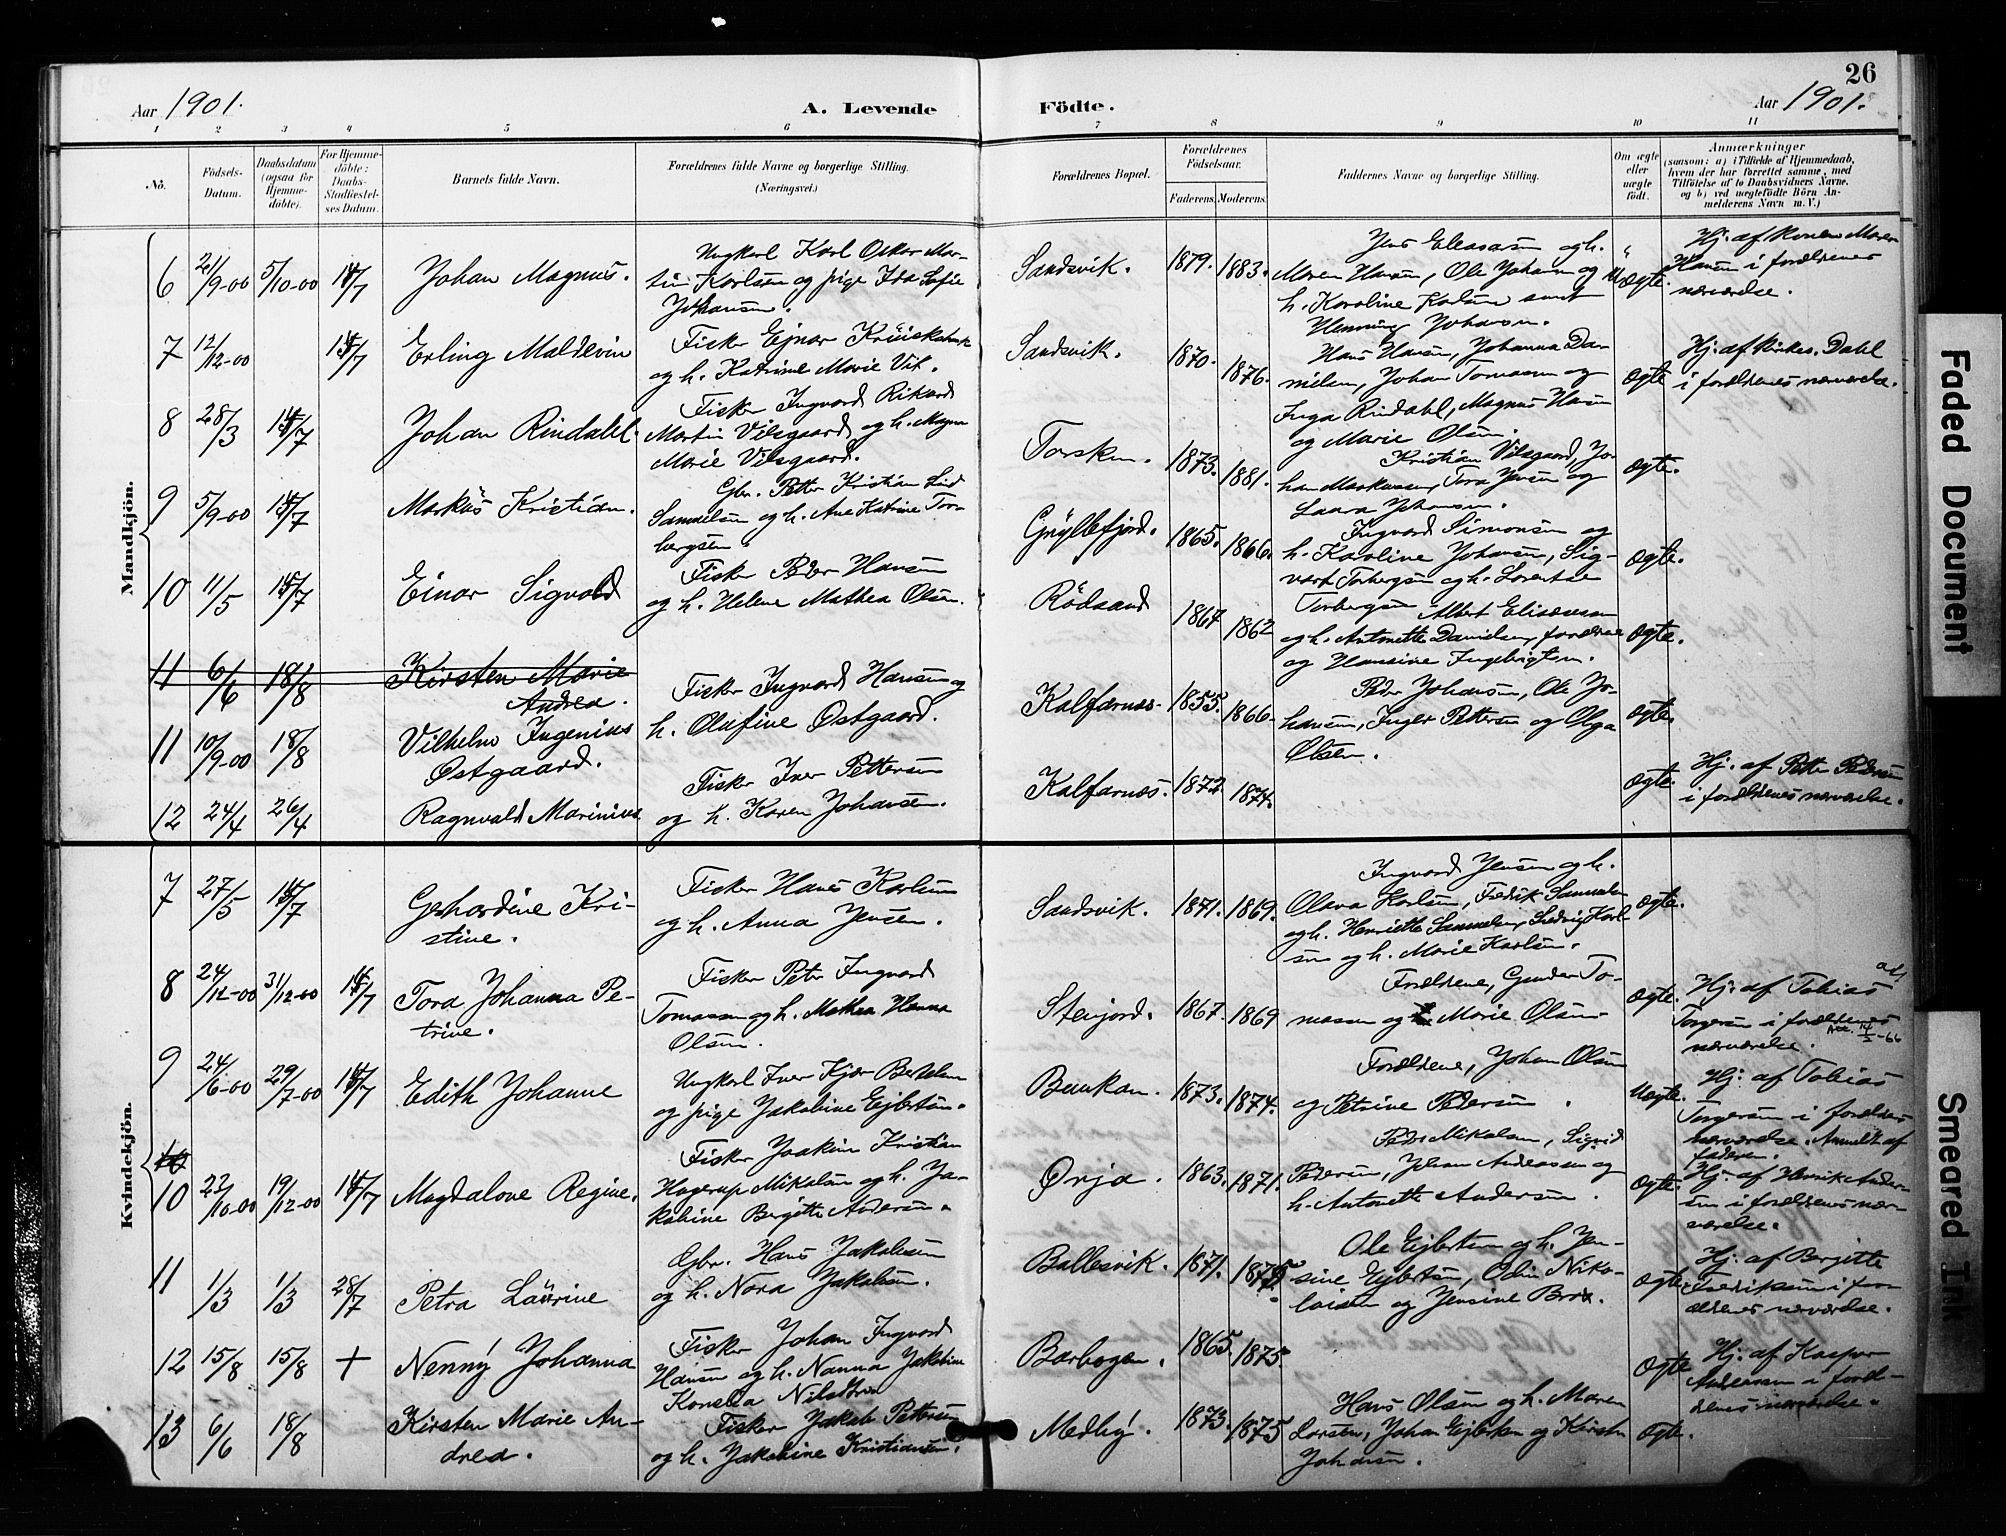 26
Aar 1901.
A. Levende Födte.
Aar 1901.
1 2 3 4 5 6 7 8 9 10 11
No.
Födsels-Datum.
Daabsdatum (ogsaa for Hjemmedöbte).
For Hjemmedöbte: Daabs-Stadfæstelses Datum.
Barnets fulde Navn.
Forældrenes fulde Navne og borgerlige Stilling.
(Næringsvei.)
Forældrenes Bopæl.
Forældrenes Födselsaar.
Faderens. Moderens.
Faddernes Navne og borgerlige Stilling.
Om ægte eller uægte födt.
Anmærkninger
(saasom: a) i Tilfælde af Hjemmedaab,
hvem der har forrettet samme, med
Tilföielse af to Daabsvidners Navne.
og b) ved uægtefödte Börn An-
melderens Navn m. V.)
Mandkjön.
6 21/9-00 5/10-00 14/7 Johan Magnus.
Ungkarl Karl Oskar Mar-
tin Karlsen og pige Ida Sofie
Johansen.
Sandsvik. 1879. 1883.
Jens Eleasasen og h.
Maren Hansen, Ole Johansen og
h. Karoline Karlsen samt
Henning Johansen.
Uægte.
Hj. af konen Maren
Hansen i forældrenes
nærværelse.
7 12/12-00 14/7 Erling Maldevin
Fisker Ejnar
og h. Katrine Marie Vik.
Sandsvik. 1870. 1876.
Hans Hansen, Johanna Da-
nielsen, Johan Tomassen og
Inga Rindahl, Magnus Hansen
og Marie Olsen.
Ægte
Hj. af kirkes. Dahl
i forældrenes nærværelse.
8 28/3 14/7 Johan Rindahl.
Fisker Ingvard Rikard
Martin Vilsgaard og h. Magna
Marie Vilsgaard.
Torsken. 1873. 1881.
Kristian Vilsgaard, Jo-
han Markussen, Tora Jensen og
Laura Johansen.
Ægte.
9 5/9-00 14/7 Markus Kristian.
Gbr. Petter Kristian
Samuelsen og h. Ane Katrine Tor-
bergsen.
Gryllefjord. 1865. 1866.
Ingvard Simonsen og
h. Karoline Johansen, Sig-
vart Torbergsen og h. Lorentse
Torbergsen
Ægte.
10 11/5 14/7 Einar Sigvald
Fisker Peder Hansen
og h. Helene Mathea Olsen.
Rödsand 1867 1862
Albert Elisæussen
og h. Antonette Davidsen, forældrene
og Hansine Ingebrigtsen.
Ægte.
11 6/6 18/8 Kirsten Marie
Andrea.
11 10/9-00 18/8 Vilhelm Ingenius
Østgaard.
Fisker Ingvard Hansen og
h. Olufine Østgaard.
Kalfarnes. 1855. 1866.
Peder Johansen, Ole Jo-
hansen, Inger Pettersen og Olga
Olsen.
Ægte.
12 24/4 26/4 Ragnvald Marinius
Fisker Iver Pettersen
og h. Karen Johansen.
Kalfarnes. 1872. 1874.
Ægte.
Hj. af Petter Pedersen
i forældrenes nærværelse.
Kvindekjön.
7 27/5 14/7 Gerhardine Kri-
stine.
Fisker Hans Karlsen
og h. Anna Jensen.
Sandsvik. 1871. 1869.
Ingvard Jensen og h.
Olava Karlsen, Fredrik Samuelsen
og h. Henriette Samuelsen, Ludvig Karl-
sen og h. Marie Karlsen.
Ægte.
8 24/12-00 31/12-00 14/7 Tora Johanna Pe-
trine.
Fisker Peter Ingvard
Tomassen og h. Mathea Hanna
Olsen.
Stenjord. 1867. 1869
Forældrene, Gunder To-
massen og Marie Olsen.
Ægte.
Hj. af Tobias
Torgersen i forældrenes
nærværelse.
9 24/6-00 29/7-00 14/7 Edith Johanne
Ungkarl Iver Kjær Bertelsen
og pige Jakobine Ejlertsen.
Bunkan. 1873. 1874.
Forældrene, Johan Olsen
og Petrine Pedersen.
Uægte.
Hj. af Tobias
Torgersen i forældres
nærværelse. Anmeldt af
faderen.
10
10 23/10-00 19/12-00 14/7 Magdalone Regine.
Fisker Joakim Kristian
Hagerup Mikalsen og h. Ja-
kobine Bergitte Andersen.
Ørja. 1863. 1871.
Peder Mikalsen, Sigrid
Pedersen, Johan Andreassen og
h. Antonette Andersen.
Ægte.
Hj. af Henrik Ander-
sen i forældrenes nær-
værelse.
11 1/3 1/3 28/7 Petra Laurine
Gbr. Hans Jakobsen
og h. Nora Jakobsen.
Ballesvik. 1871. 1875.
Ole Ejlertsen og h. Jen-
sine Ejlertsen, Odin Niko-
laisen og Jensine Brox.
Ægte.
Hj. af Bergitte
Fredriksen i for-
ældrenes nærværelse.
12 15/8 15/8 + Nenny Johanna
Fisker Johan Ingvard
Hansen og h. Nanna Jakobine
Kornelia
Barbogen. 1865. 1875.
Ægte
Hj. af Kaspar
Andersen i foræl-
drenes nærværelse.
13 6/6 18/8 Kirsten Marie An-
drea.
Fisker Jakob Pettersen
og h. Jakobine Kristiansen.
Medby. 1873. 1875
Hans Olsen og h. Maren
Larsen, Johan Ejlertsen og Kirsten
Johansen.
Ægte.
Faded Document
Smeared Ink